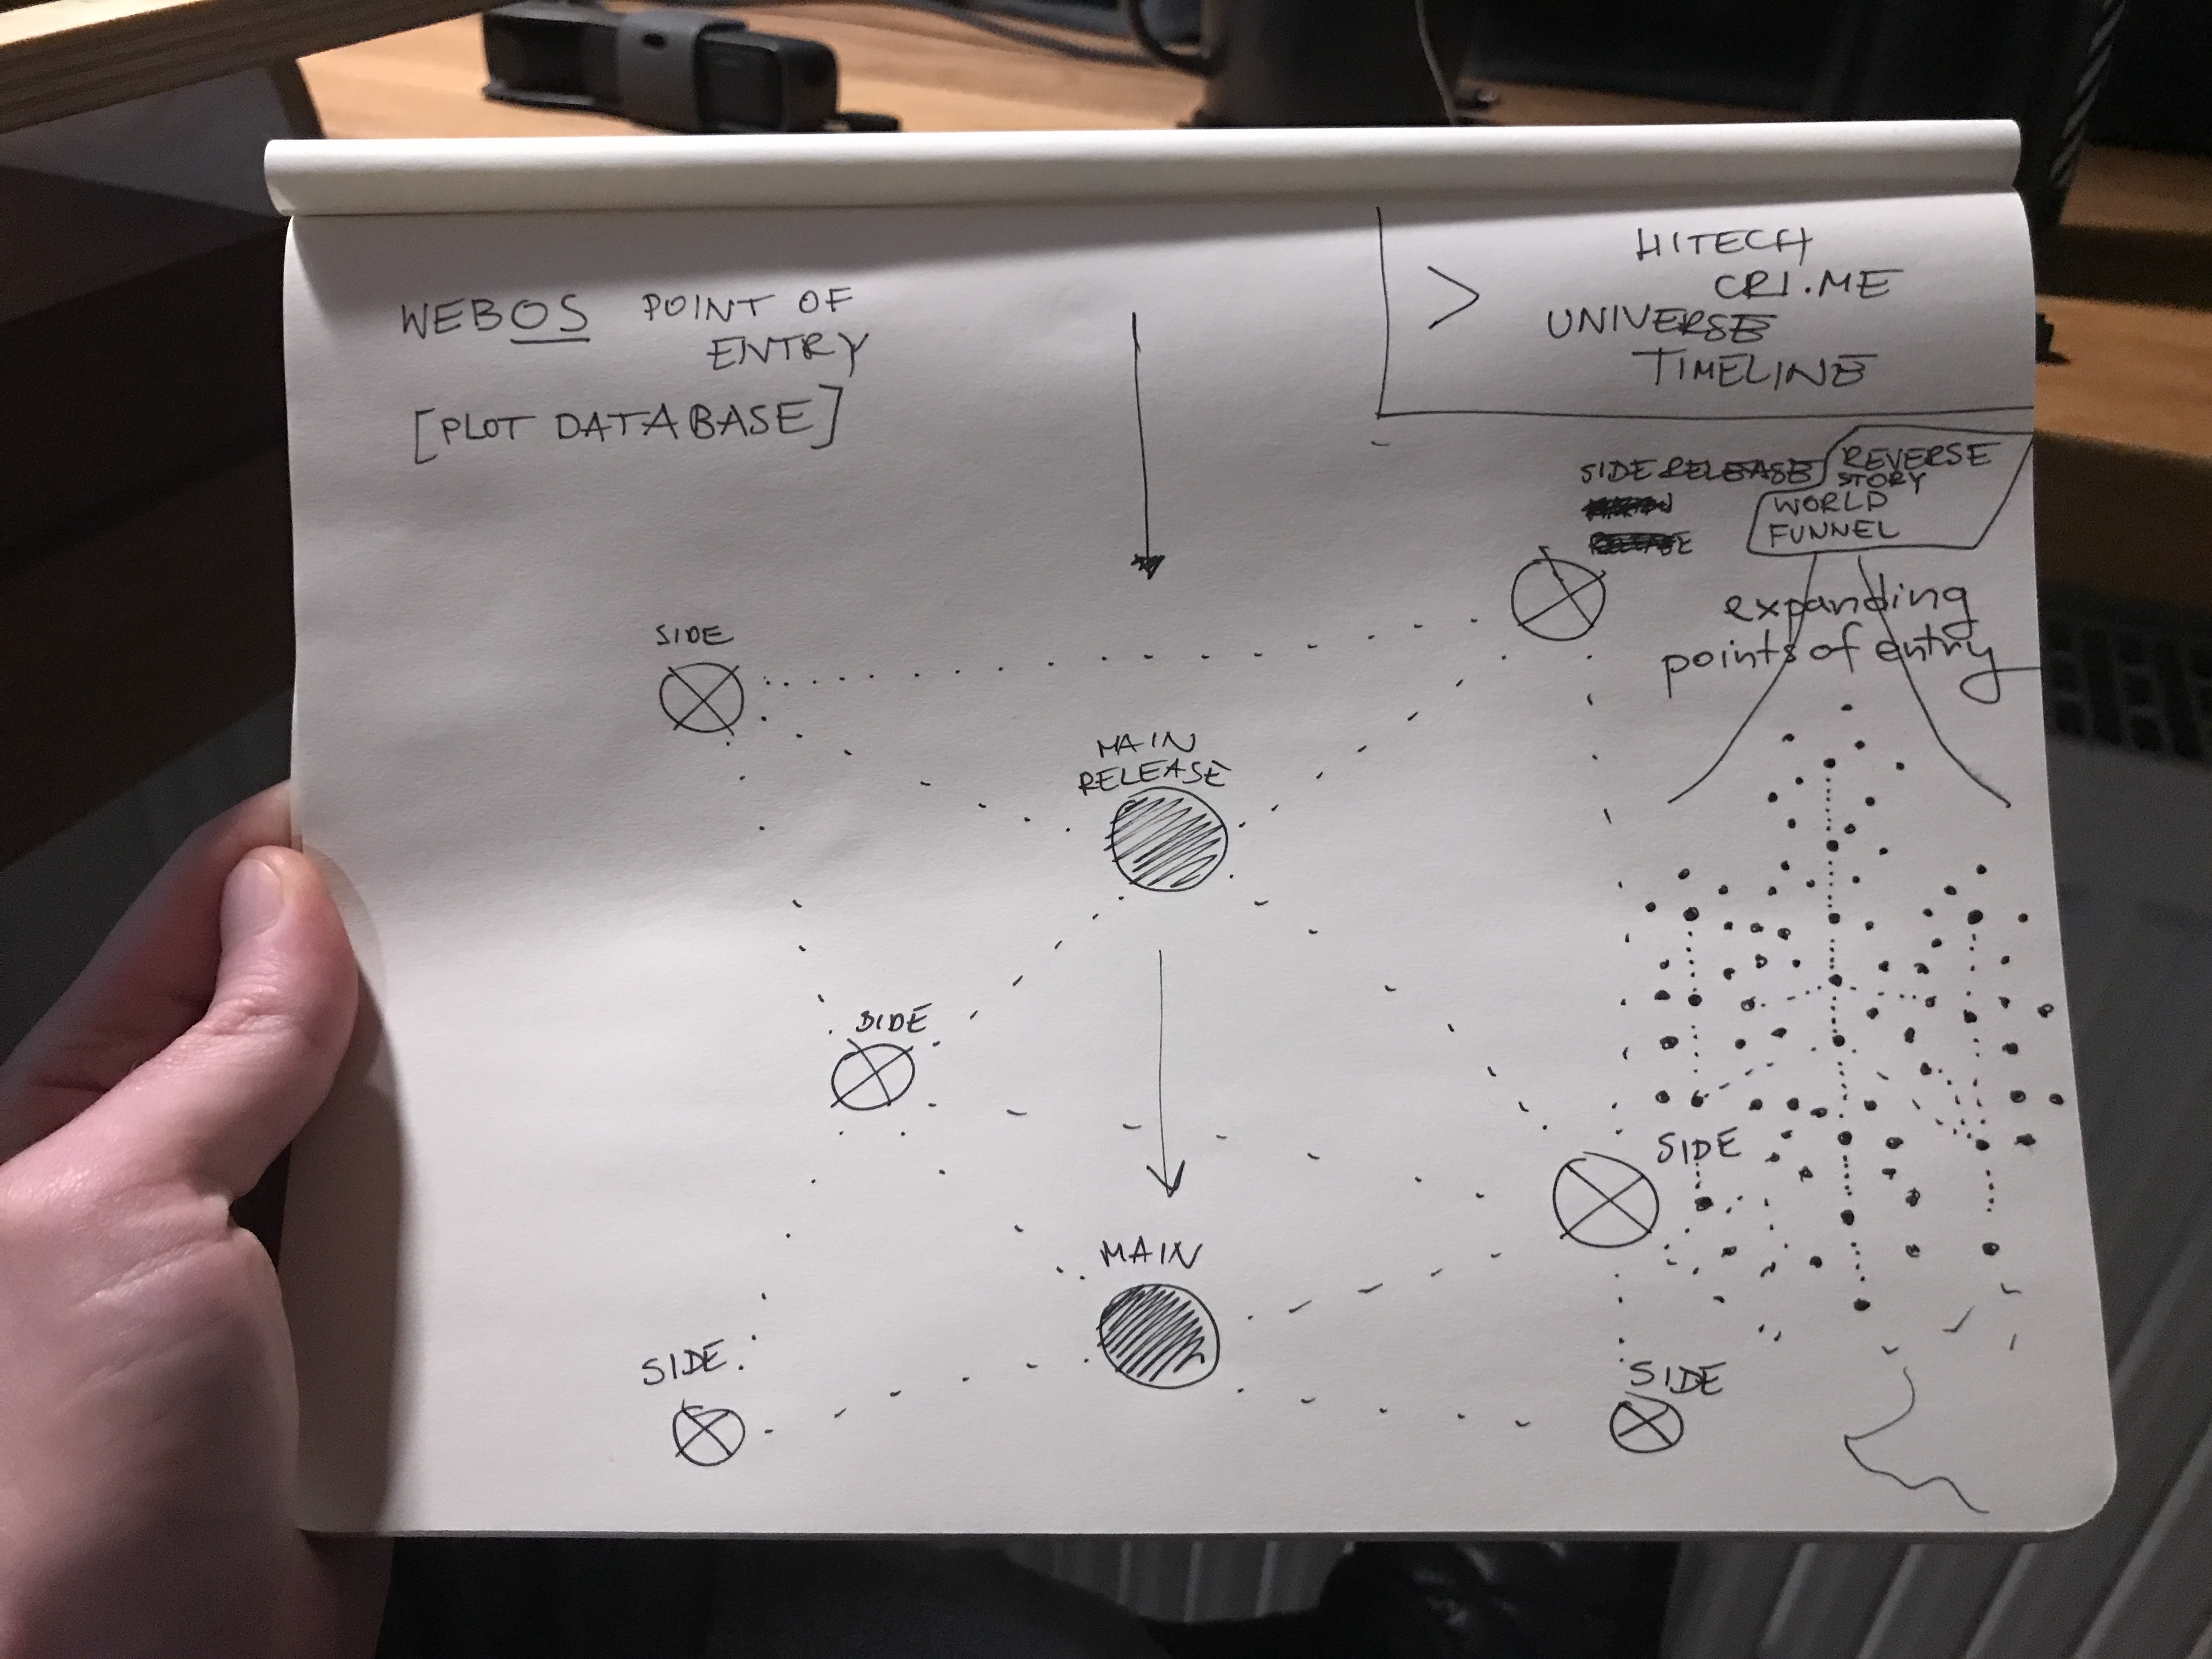 WEBOS POINT OF
ENTRY
[PLOT DATABASE]
> HITECH
CRI.ME
UNIVERSE
TIMELINE
SIDE RELEASE
REVERSE
STORY
WORLD
FUNNEL
expanding
points of entry
SIDE
MAIN
RELEASE
SIDE
SIDE
MAIN
SIDE
SIDE